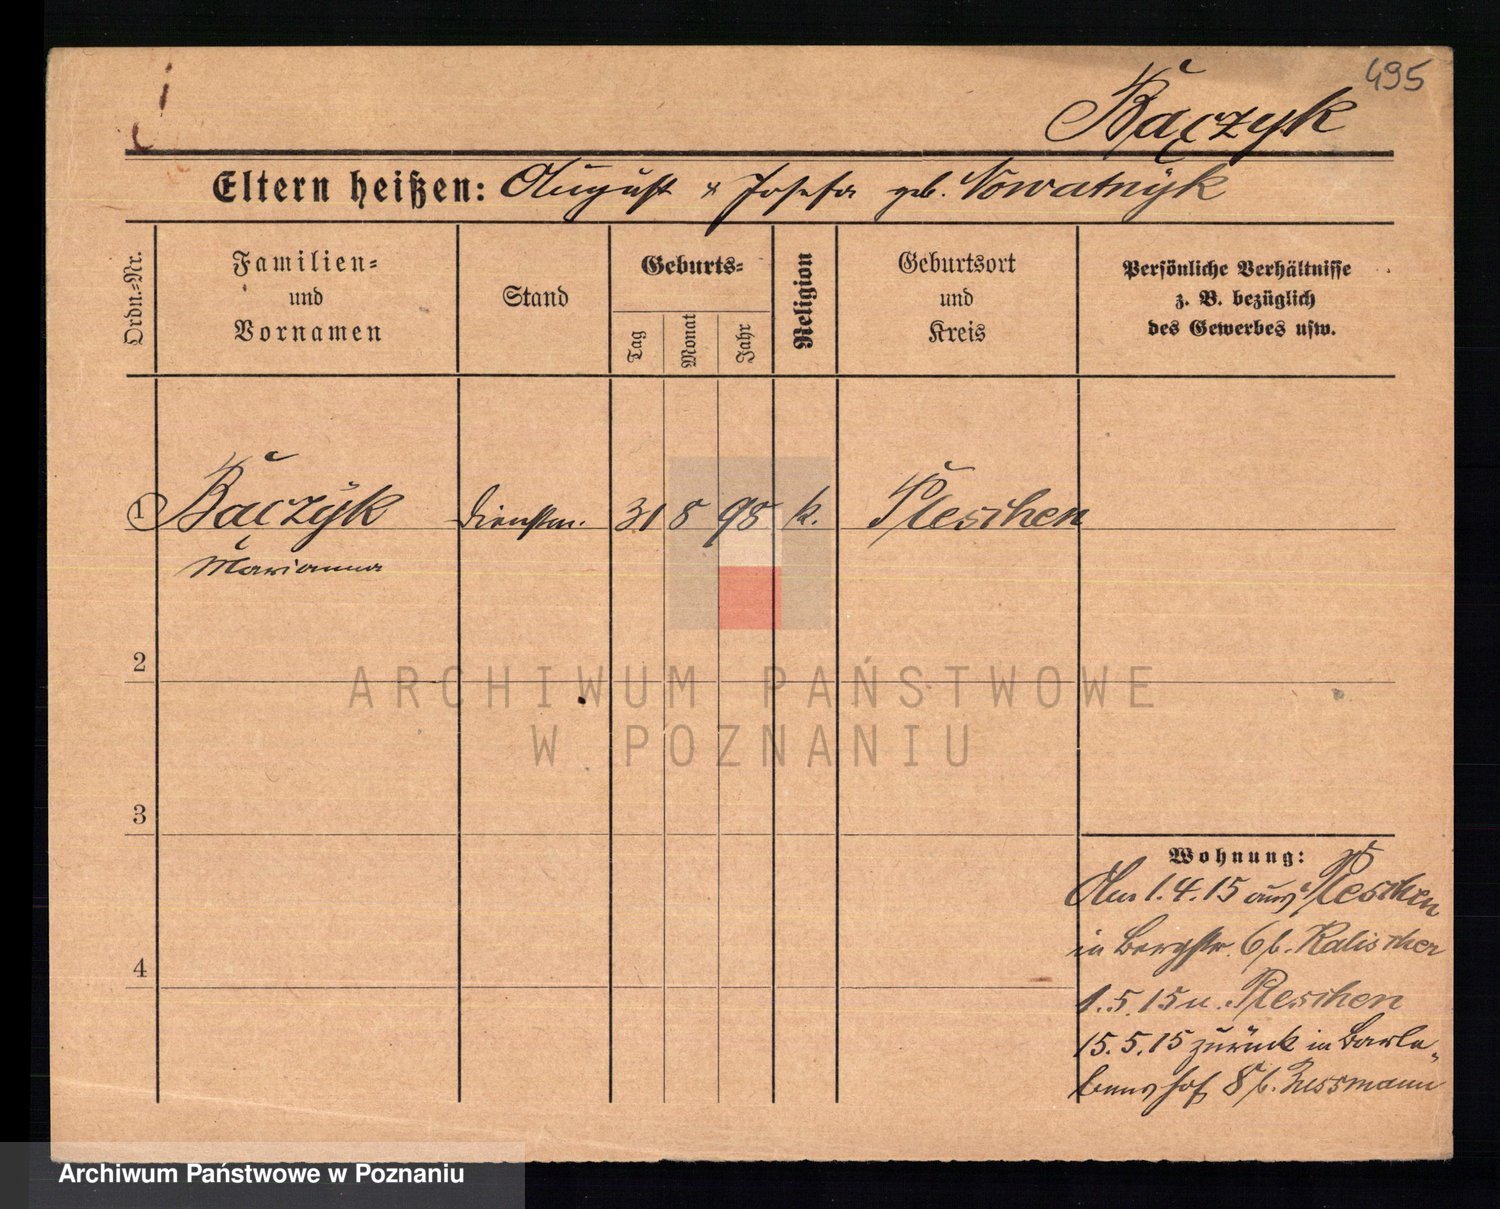 495
Bączyk
Eltern heißen: August & Josefa geb. Nowatnÿk
Ordn.-Nr.
Familien-
und
Vornamen
Stand
Geburts-
Tag
Monat
Jahr
Religion
Geburtsort
und
Kreis
Persönliche Verhältnisse
z. B. bezüglich
des Gewerbes usw.
1 Bączÿk Dienstm. 31 8 98 k. Pleschen
Marianna
2
ARCHIWUM PAŃSTWOWE
W POZNANIU
3
Wohnung:
Am 1.4.15 aus Pleschen
in Bergstr. 6 b. Kalischer
4
1.5.15 n. Pleschen
15.5.15 zurück in
hof 8 b.
Archiwum Państwowe w Poznaniu